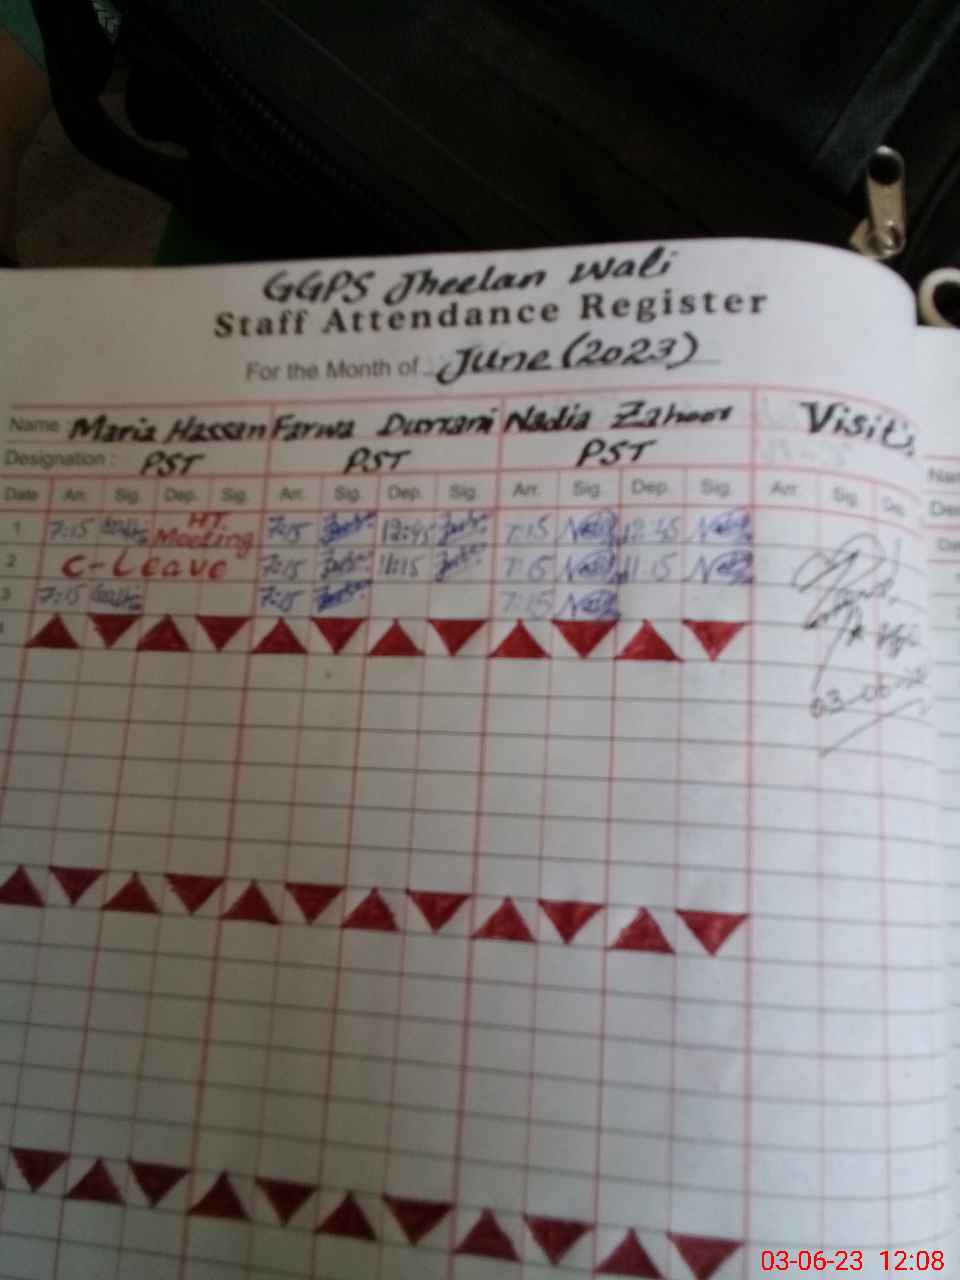 GGPS Jheelan Wali
Staff Attendance Register
For the Month of June (2023)
Name : Maria Hassan Farwa Durrani Nadia Zahoor Visits
Designation : PST PST PST
Date Arr. Sig. Dep. Sig. Arr. Sig. Dep. Sig. Arr. Sig. Dep. Sig. Arr. Sig. Dep.
1 7:15 HT Meeting 7:15 12:45 7:15 12:45
2 C-Leave 7:15 11:15 7:15 11:15
3 7:15 7:15 7:15
03-06-23 12:08